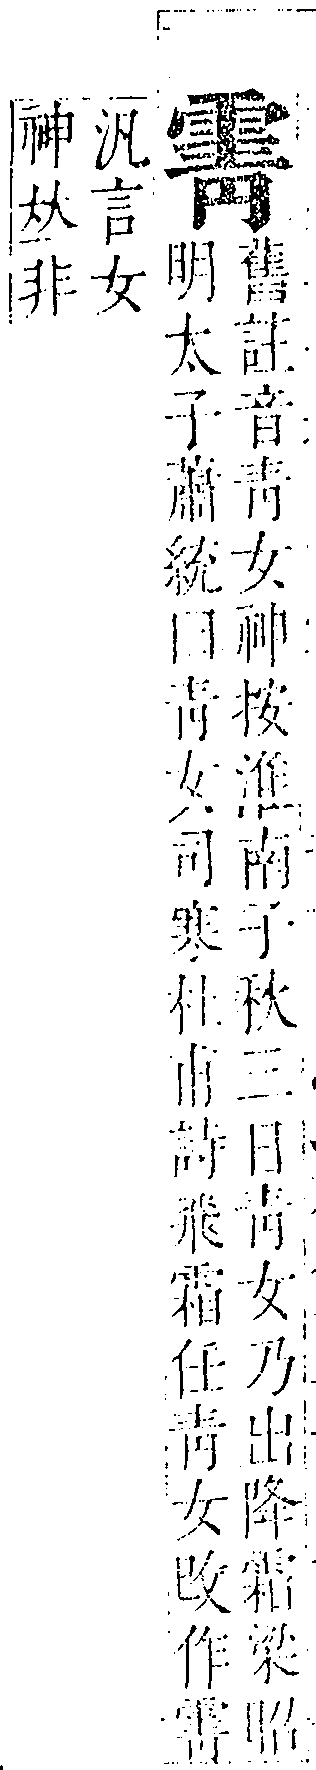 䨝
舊註音靑女神按淮南子秋三日靑女乃出降霜梁昭
明太子蕭統曰靑女司寒杜甫詩飛霜任靑女改作䨝
汎言女
神𠀤非